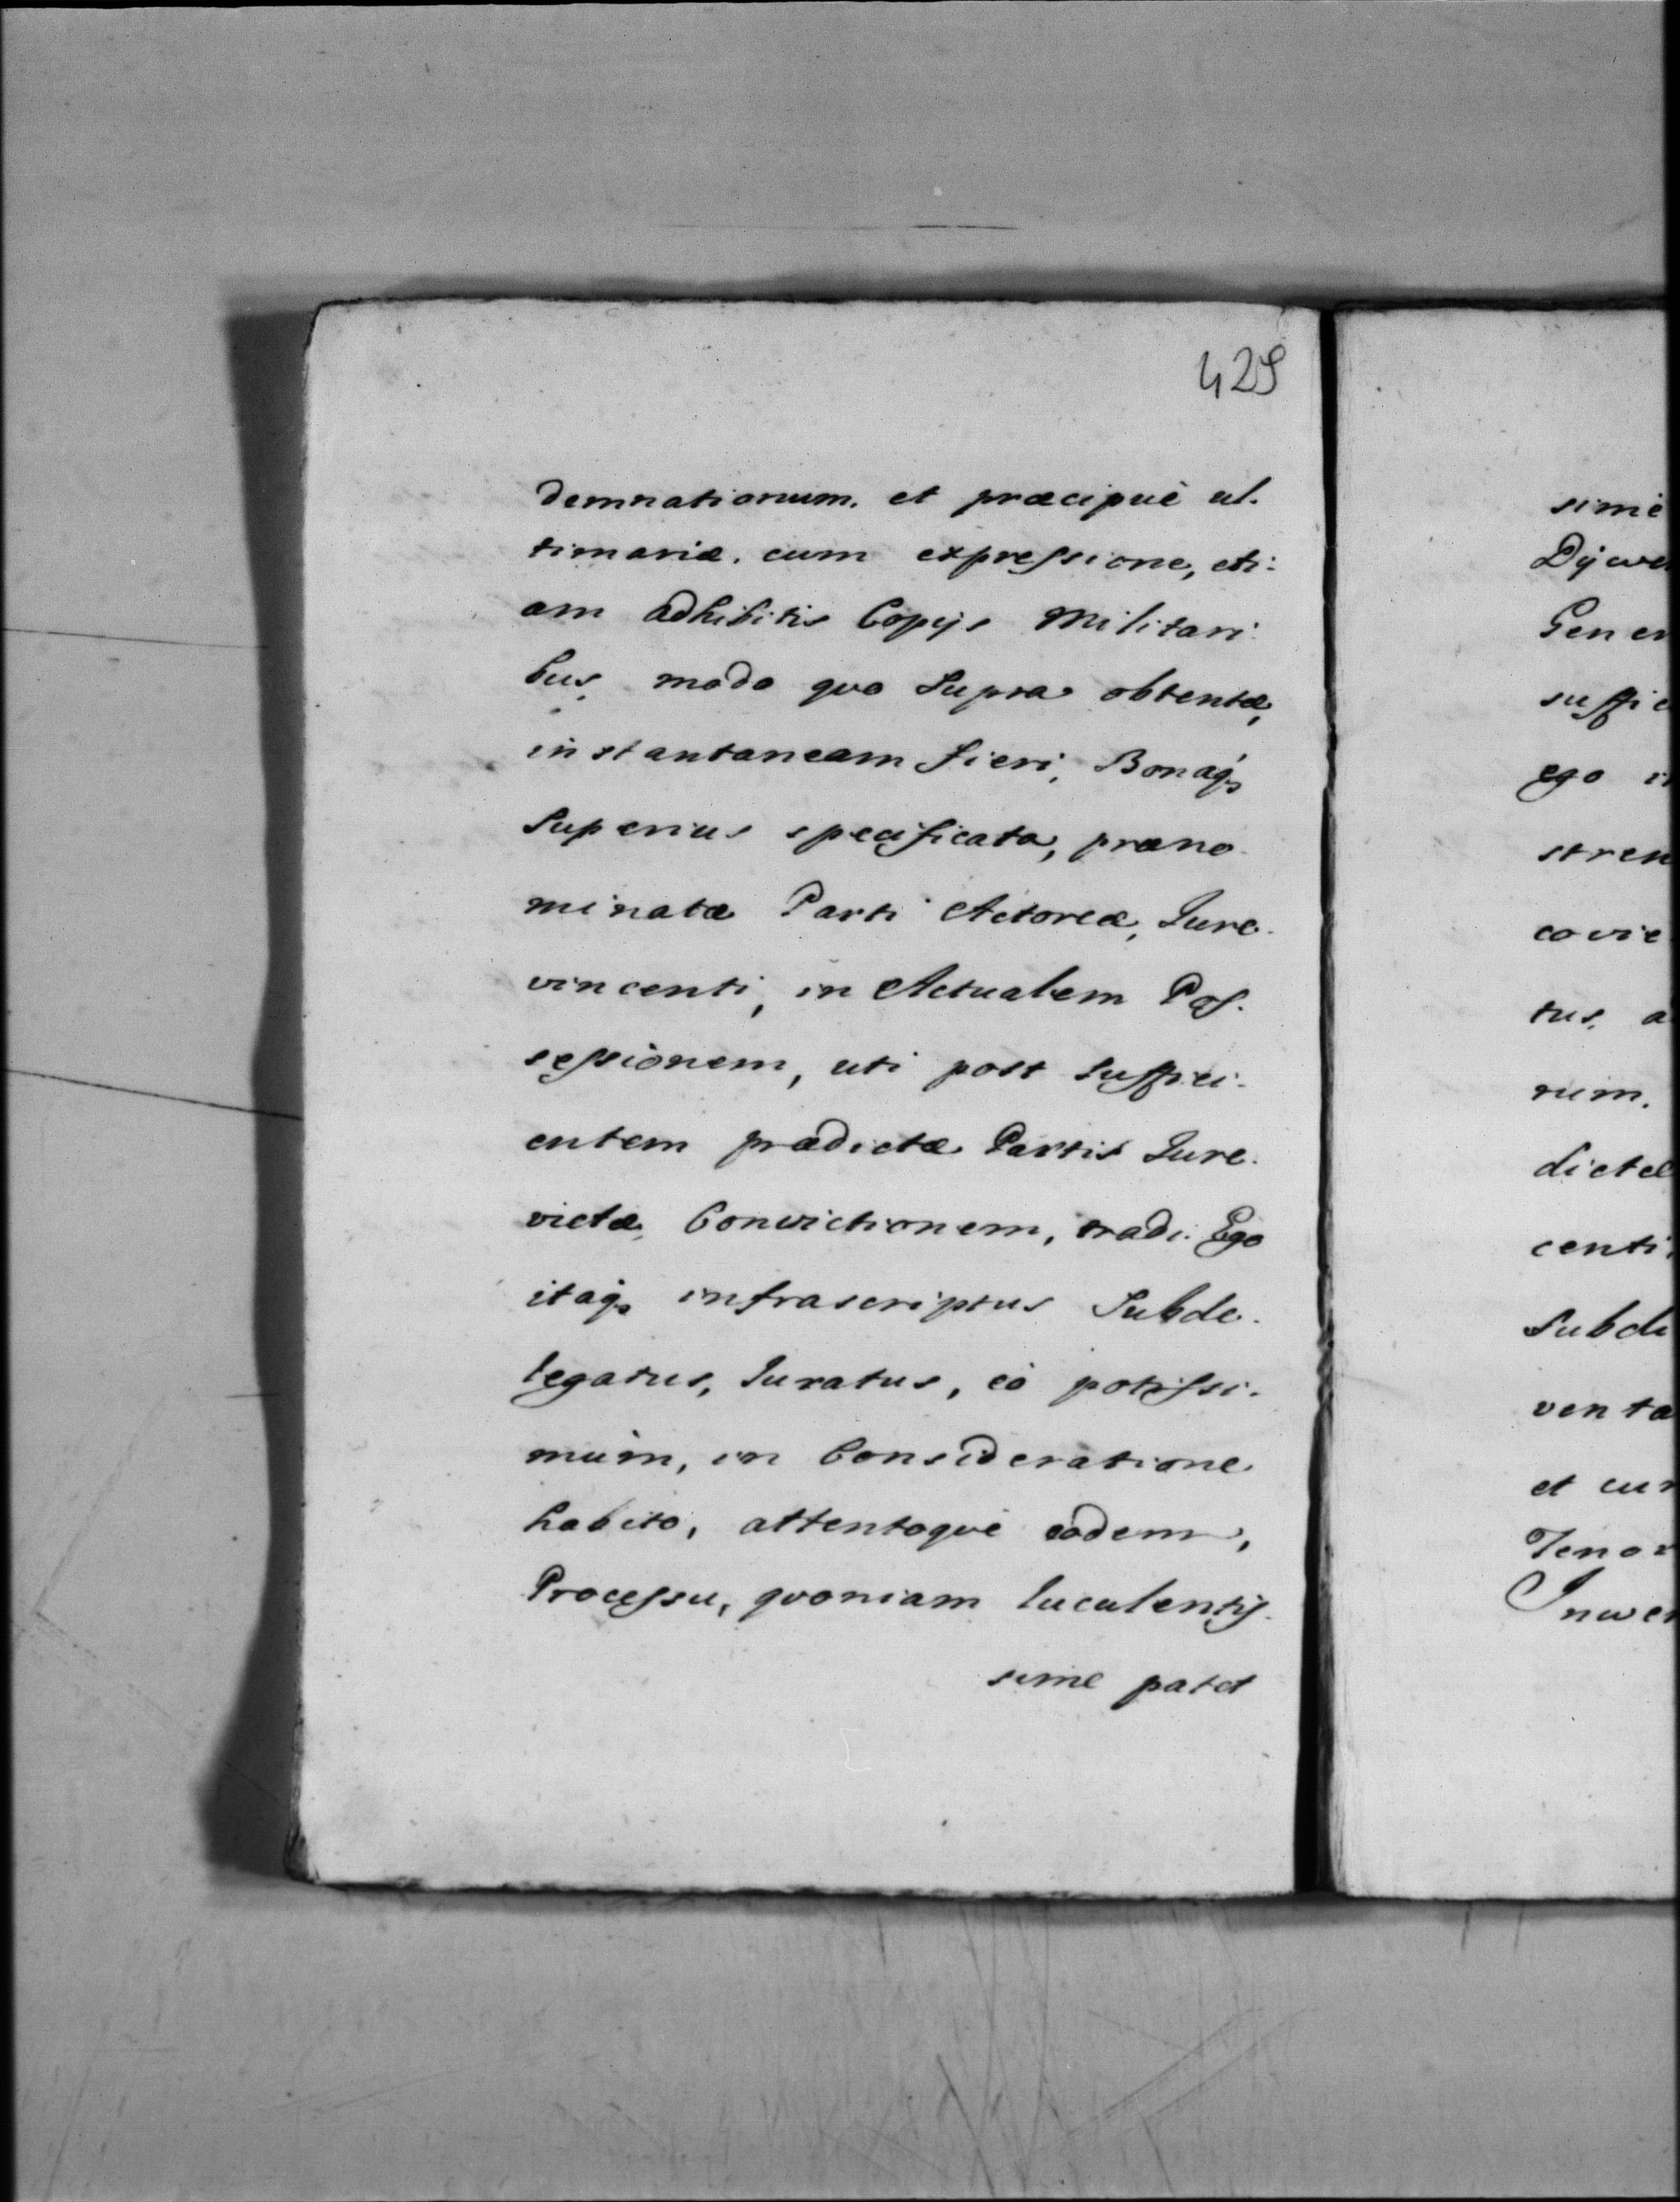 429
demnationum. et præcipuè ul-
timariæ. cum expressione, eti-
am adhibitis Copijs Militari-
bus, modo quo Supra obtentæ,
instantaneam fieri, Bonaq;
Superius specificata, præno-
minatæ Parti Actoreæ, Jure-
vincenti, in Actualem Pos-
sessionem, uti post suffici-
entem prædictæ Partis Jure-
victæ, Convictionem, tradi. Ego
itaq; infrascriptus Subde-
legatus, Juratus, eò potissi-
mùm, in Consideratione
habito, attentoquè eodem,
Processu, quoniam luculentis-
sime patet
simè
Dijwe
Gener
suffic
ego i
stren
covie
tus, a
rum.
dictæ
centi,
Subde
venta
et cur
Tenor
Inwen